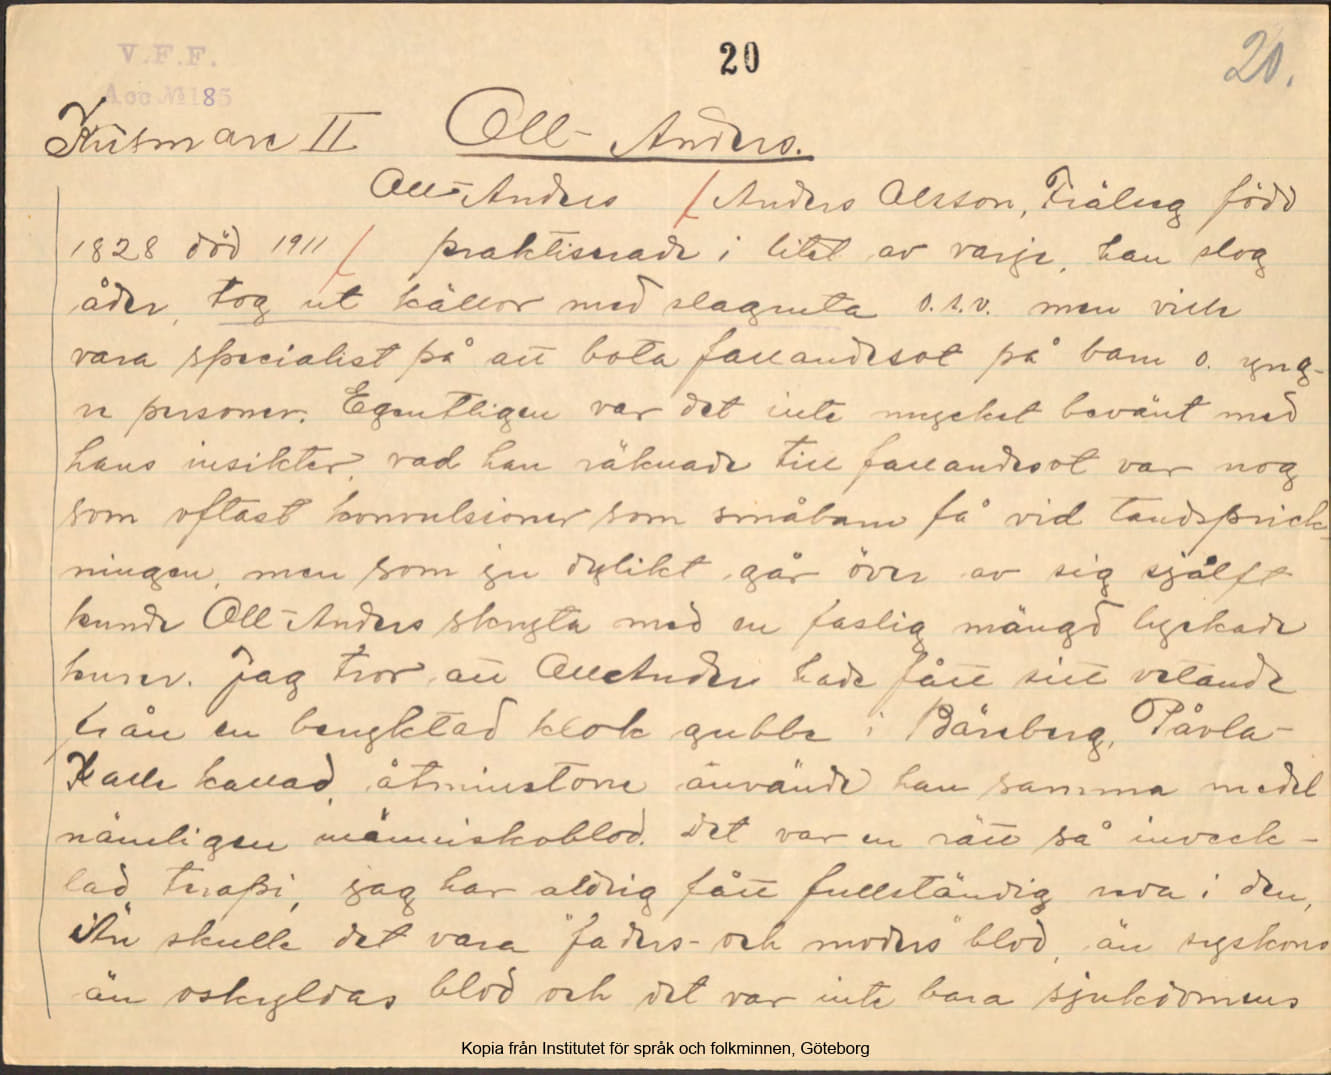 V.F.F.
20
20.
Acc № 185
Kusmare II Oll-Anders.
Oll-Anders / Anders Olsson, Fråleg född
1828 död 1911 / praktiserade i litet av varje, han slog
åder, tog ut källor med slagruta o.s.v. men ville
vara specialist på att bota fallandesot på barn o. yng-
re personer. Egentligen var det inte mycket bevänt med
hans insikter, vad han räknade till fallandesot var nog
som oftast konvulsioner som småbarn få vid tandsprick-
ningen, men som ju dylikt går över av sig självt
kunde Oll-Anders skryta med en faslig mängd lyckade
kurer. Jag tror att Oll Anders hade fått sitt vetande
från en beryktad klok gubbe i Bäreberg, Påvla-
Kalle kallad, åtminstone använde han samma medel
nämligen människoblod. Det var en rätt så inveck-
lad terapi, jag har aldrig fått fullständig reda i den,
Än skulle det vara "faders- och moders" blod, än syskons
än oskyldas blod och det var inte bara sjukdomens
Kopia från Institutet för språk och folkminnen, Göteborg